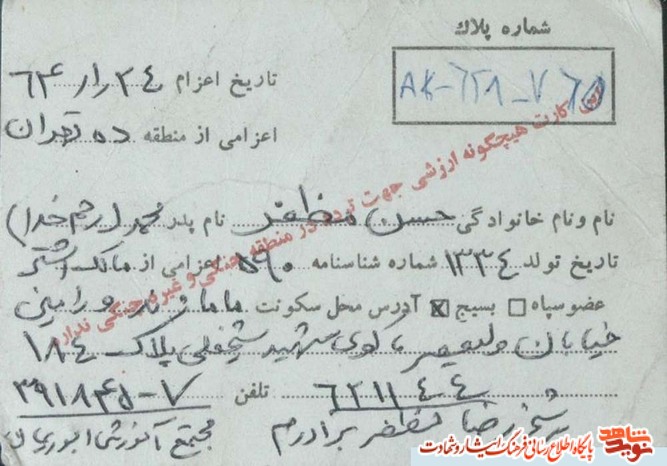 شماره پلاک
AK-651-V
تاریخ اعزام ۲۴ ر ۱ ر ۶۴
اعزامی از منطقه ده تهران
این کارت هیچگونه ارزشی جهت تردد در منطقه جنگی و غیر جنگی ندارد
نام و نام خانوادگی حسن مظفر نام پدر محمد (رحم خدا)
تاریخ تولد ۱۳۳۴ شماره شناسنامه ۵۹۰ اعزامی از مالک اشتر
عضو سپاه □ بسیج ☒ آدرس محل سکونت ورامین
خیابان ولیعصر کوی شهید شیخعلی پلاک ۱۸۴
۶۲۱۱۴۴ تلفن ۷-۳۹۱۸۴۵
شیخ رضا مظفر برادرم مجتمع آموزشی ابوریحان
نوید شاهد
پایگاه اطلاع رسانی فرهنگ ایثار و شهادت